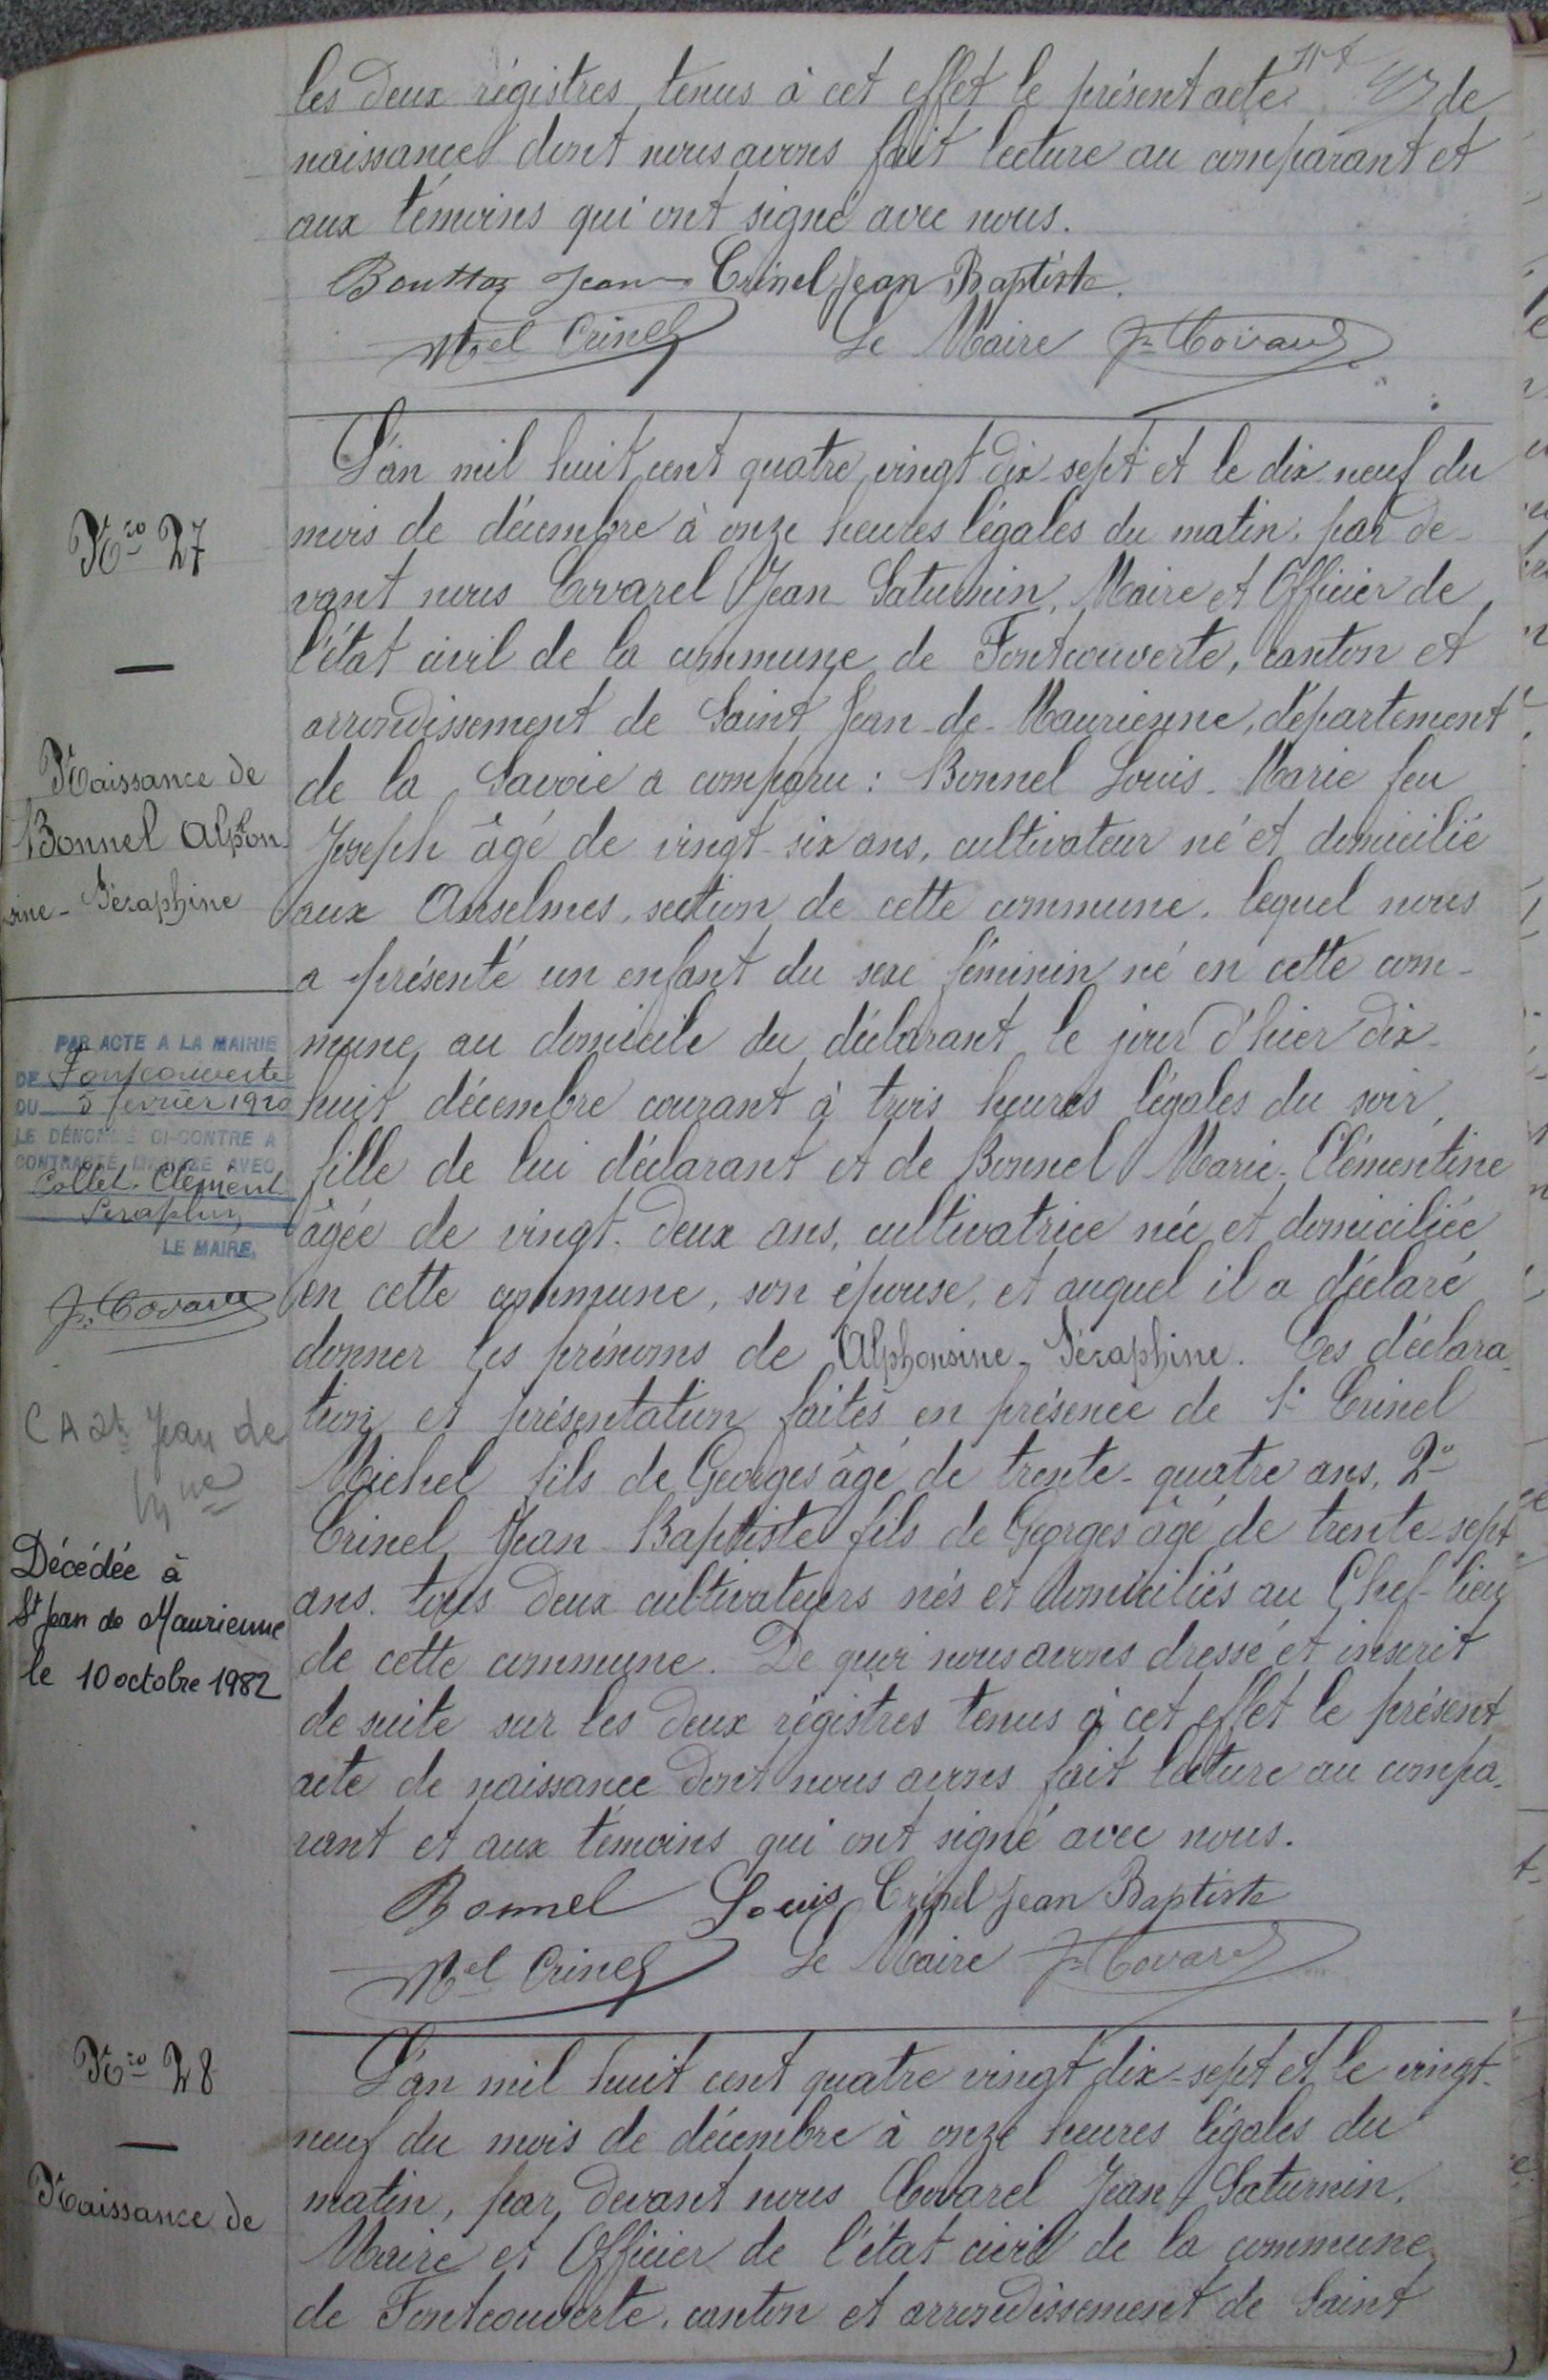 les deux régistres tenus à cet effet le présent acte de
naissance dont nous avons fait lecture au comparant et
aux témoins qui ont signé avec nous.
Bouttaz Jean Crinel Jean Baptiste.
Mel Crinel Le Maire J. Covarel
Nro 27
Naissance de
Bonnel Alphon
sine - Séraphine
L'an mil huit cent quatre vingt dix-sept et le dix neuf du
mois de décembre à onze heures légales du matin, par de-
vant nous Covarel Jean Saturnin, Maire et Officier de
l'état civil de la commune de Fontcouverte, canton et
arrondissement de Saint Jean-de-Maurienne, département
de la Savoie a comparu : Bonnel Louis-Marie feu
Joseph âgé de vingt-six ans, cultivateur né et domicilié
aux Anselmes, section de cette commune, lequel nous
a présenté un enfant du sexe féminin né en cette com-
mune, au domicile du déclarant le jour d'hier dix-
huit décembre courant à trois heures légales du soir,
fille de lui déclarant et de Bonnel Marie-Clémentine
âgée de vingt-deux ans, cultivatrice née et domiciliée
en cette commune, son épouse, et auquel il a déclaré
donner les prénoms de Alphonsine-Séraphine. Ces déclara-
tion et présentation faites en présence de 1° Crinel
Michel fils de Georges âgé de trente-quatre ans, 2°
Crinel Jean-Baptiste fils de Georges âgé de trente-sept
ans. tous deux cultivateurs nés et domiciliés au Chef-lieu
de cette commune. De quoi nous avons dressé et inscrit
de suite sur les deux régistres tenus à cet effet le présent
acte de naissance dont nous avons fait lecture au compa-
rant et aux témoins qui ont signé avec nous.
Bonnel Louis Crinel Jean Baptiste
Mel Crinel Le Maire J. Covarel
PAR ACTE A LA MAIRIE
DE Fontcouverte
DU 5 février 1920
LE DÉNOMMÉ CI-CONTRE A
CONTRACTÉ MARIAGE AVEC
Collet Clément
Séraphin
LE MAIRE,
J. Covarel
CA St Jean de
Mne
Décédée à
St Jean de Maurienne
le 10 octobre 1982
Nro 28
Naissance de
L'an mil huit cent quatre vingt dix-sept et le vingt-
neuf du mois de décembre à onze heures légales du
matin, par devant nous Covarel Jean Saturnin,
Maire et Officier de l'état civil de la commune
de Fontcouverte, canton et arrondissement de Saint